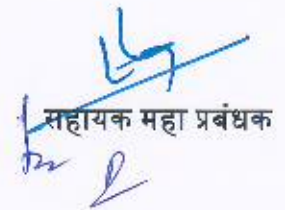 सहायक महा प्रबंधक